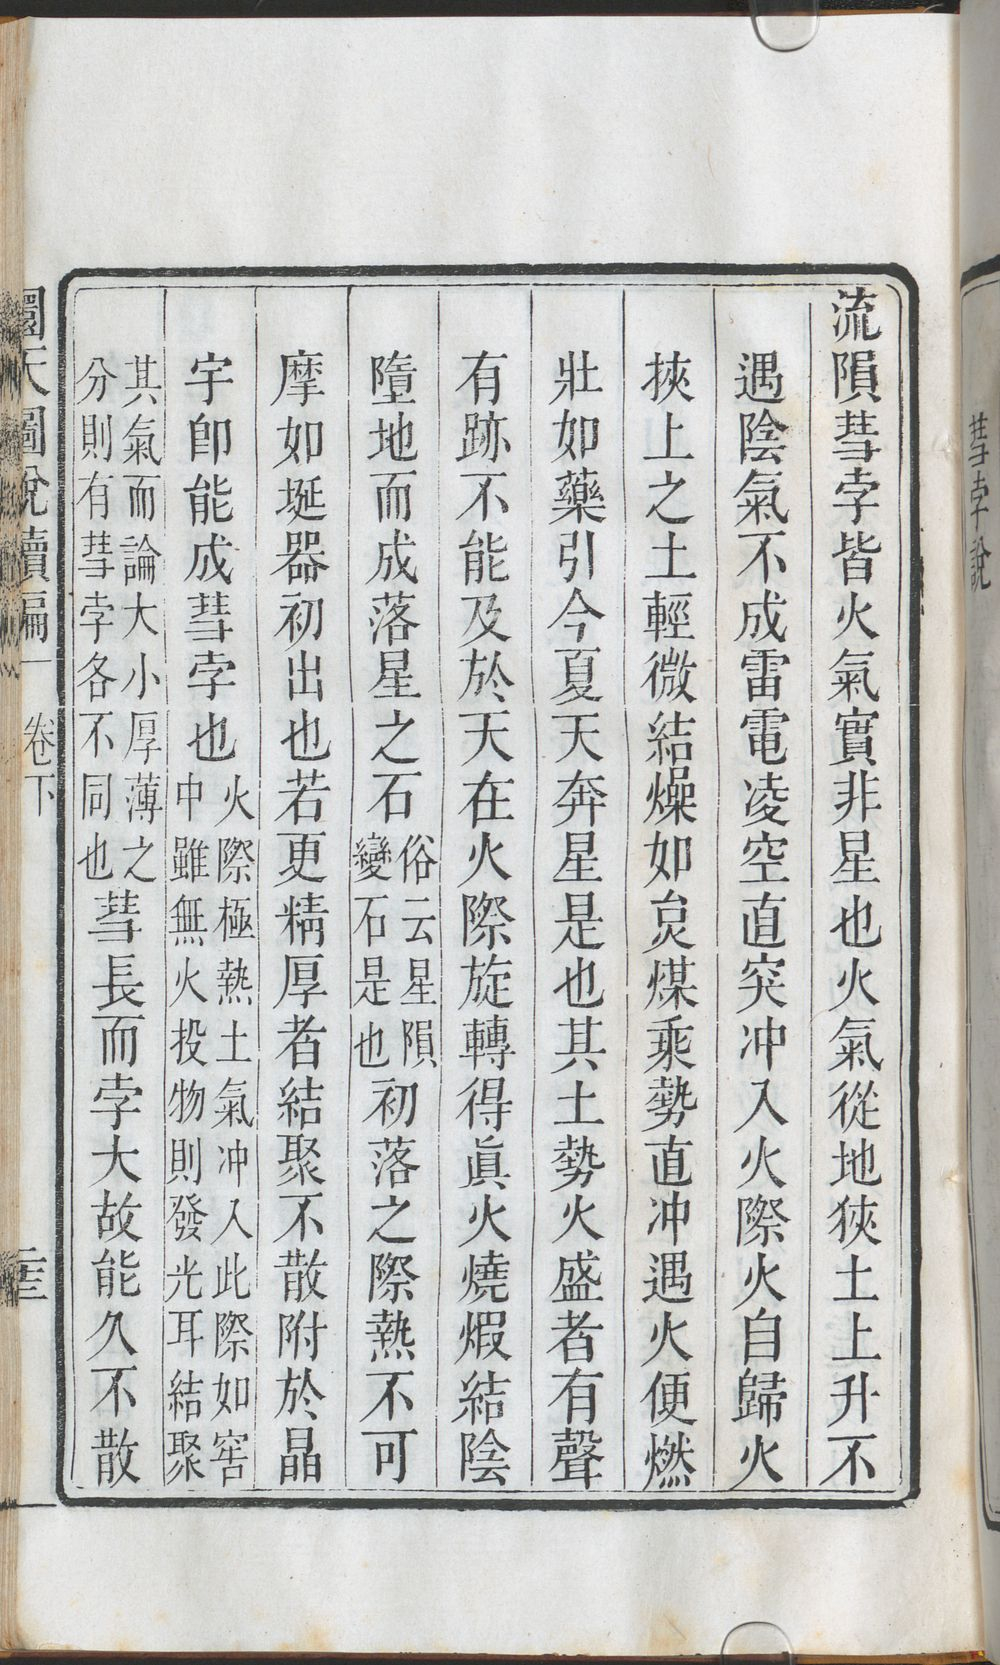 彗孛說
流隕彗孛皆火氣實非星也火氣從地狹土上升不
遇陰氣不成雷電凌空直突冲入火際火自歸火
挾上之土輕微結燥如炱煤乘勢直冲遇火便燃
壯如藥引今夏天奔星是也其土勢火盛者有聲
有跡不能及於天在火際旋轉得眞火燒煆結陰
墮地而成落星之石俗云星隕變石是也初落之際熱不可
摩如埏器初出也若更精厚者結聚不散附於晶
宇卽能成彗孛也火際極熱土氣冲入此際如窖中雖無火投物則發光耳結聚
其氣而論大小厚薄之分則有彗孛各不同也彗長而孛大故能久不散
圜天圖說續編 卷下